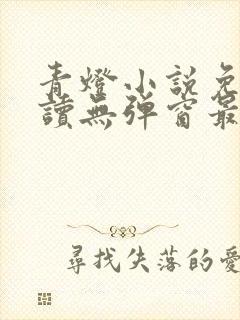 青燈小說免
讀無彈窗最
尋找失落的愛